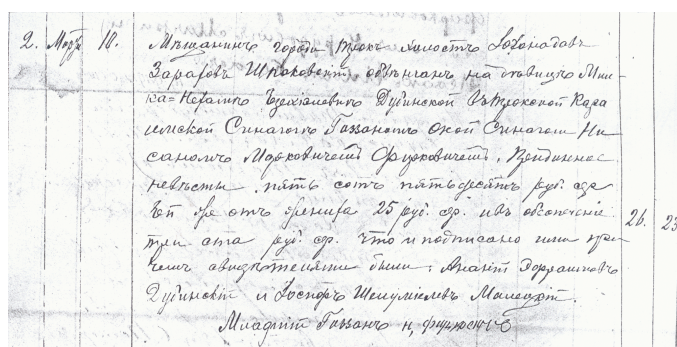 2. Марта 18. Мѣщанинъ города Трокъ холостъ Іохонадавъ
Зараховъ Шпаковскій обвѣнчанъ на дѣвицѣ Мил-
ка=Нерагинъ Дубинской въ Трокской Кара
имской Синагогѣ Газзаномъ оной Синагоги Ни
саномъ Марковичемъ Фирковичемъ.
невѣсты пять сотъ пятьдесятъ руб. сер
ей же отъ жениха 25 руб. сер. и въ обезпеченіе
три ста руб. сер. что и подписано ими при
чемъ свидѣтелями были: Ананій 26. 23
Дубинскій и Іосифъ Шемуилевъ Малецкій.
Младшій Газзанъ Н. Фирковичъ